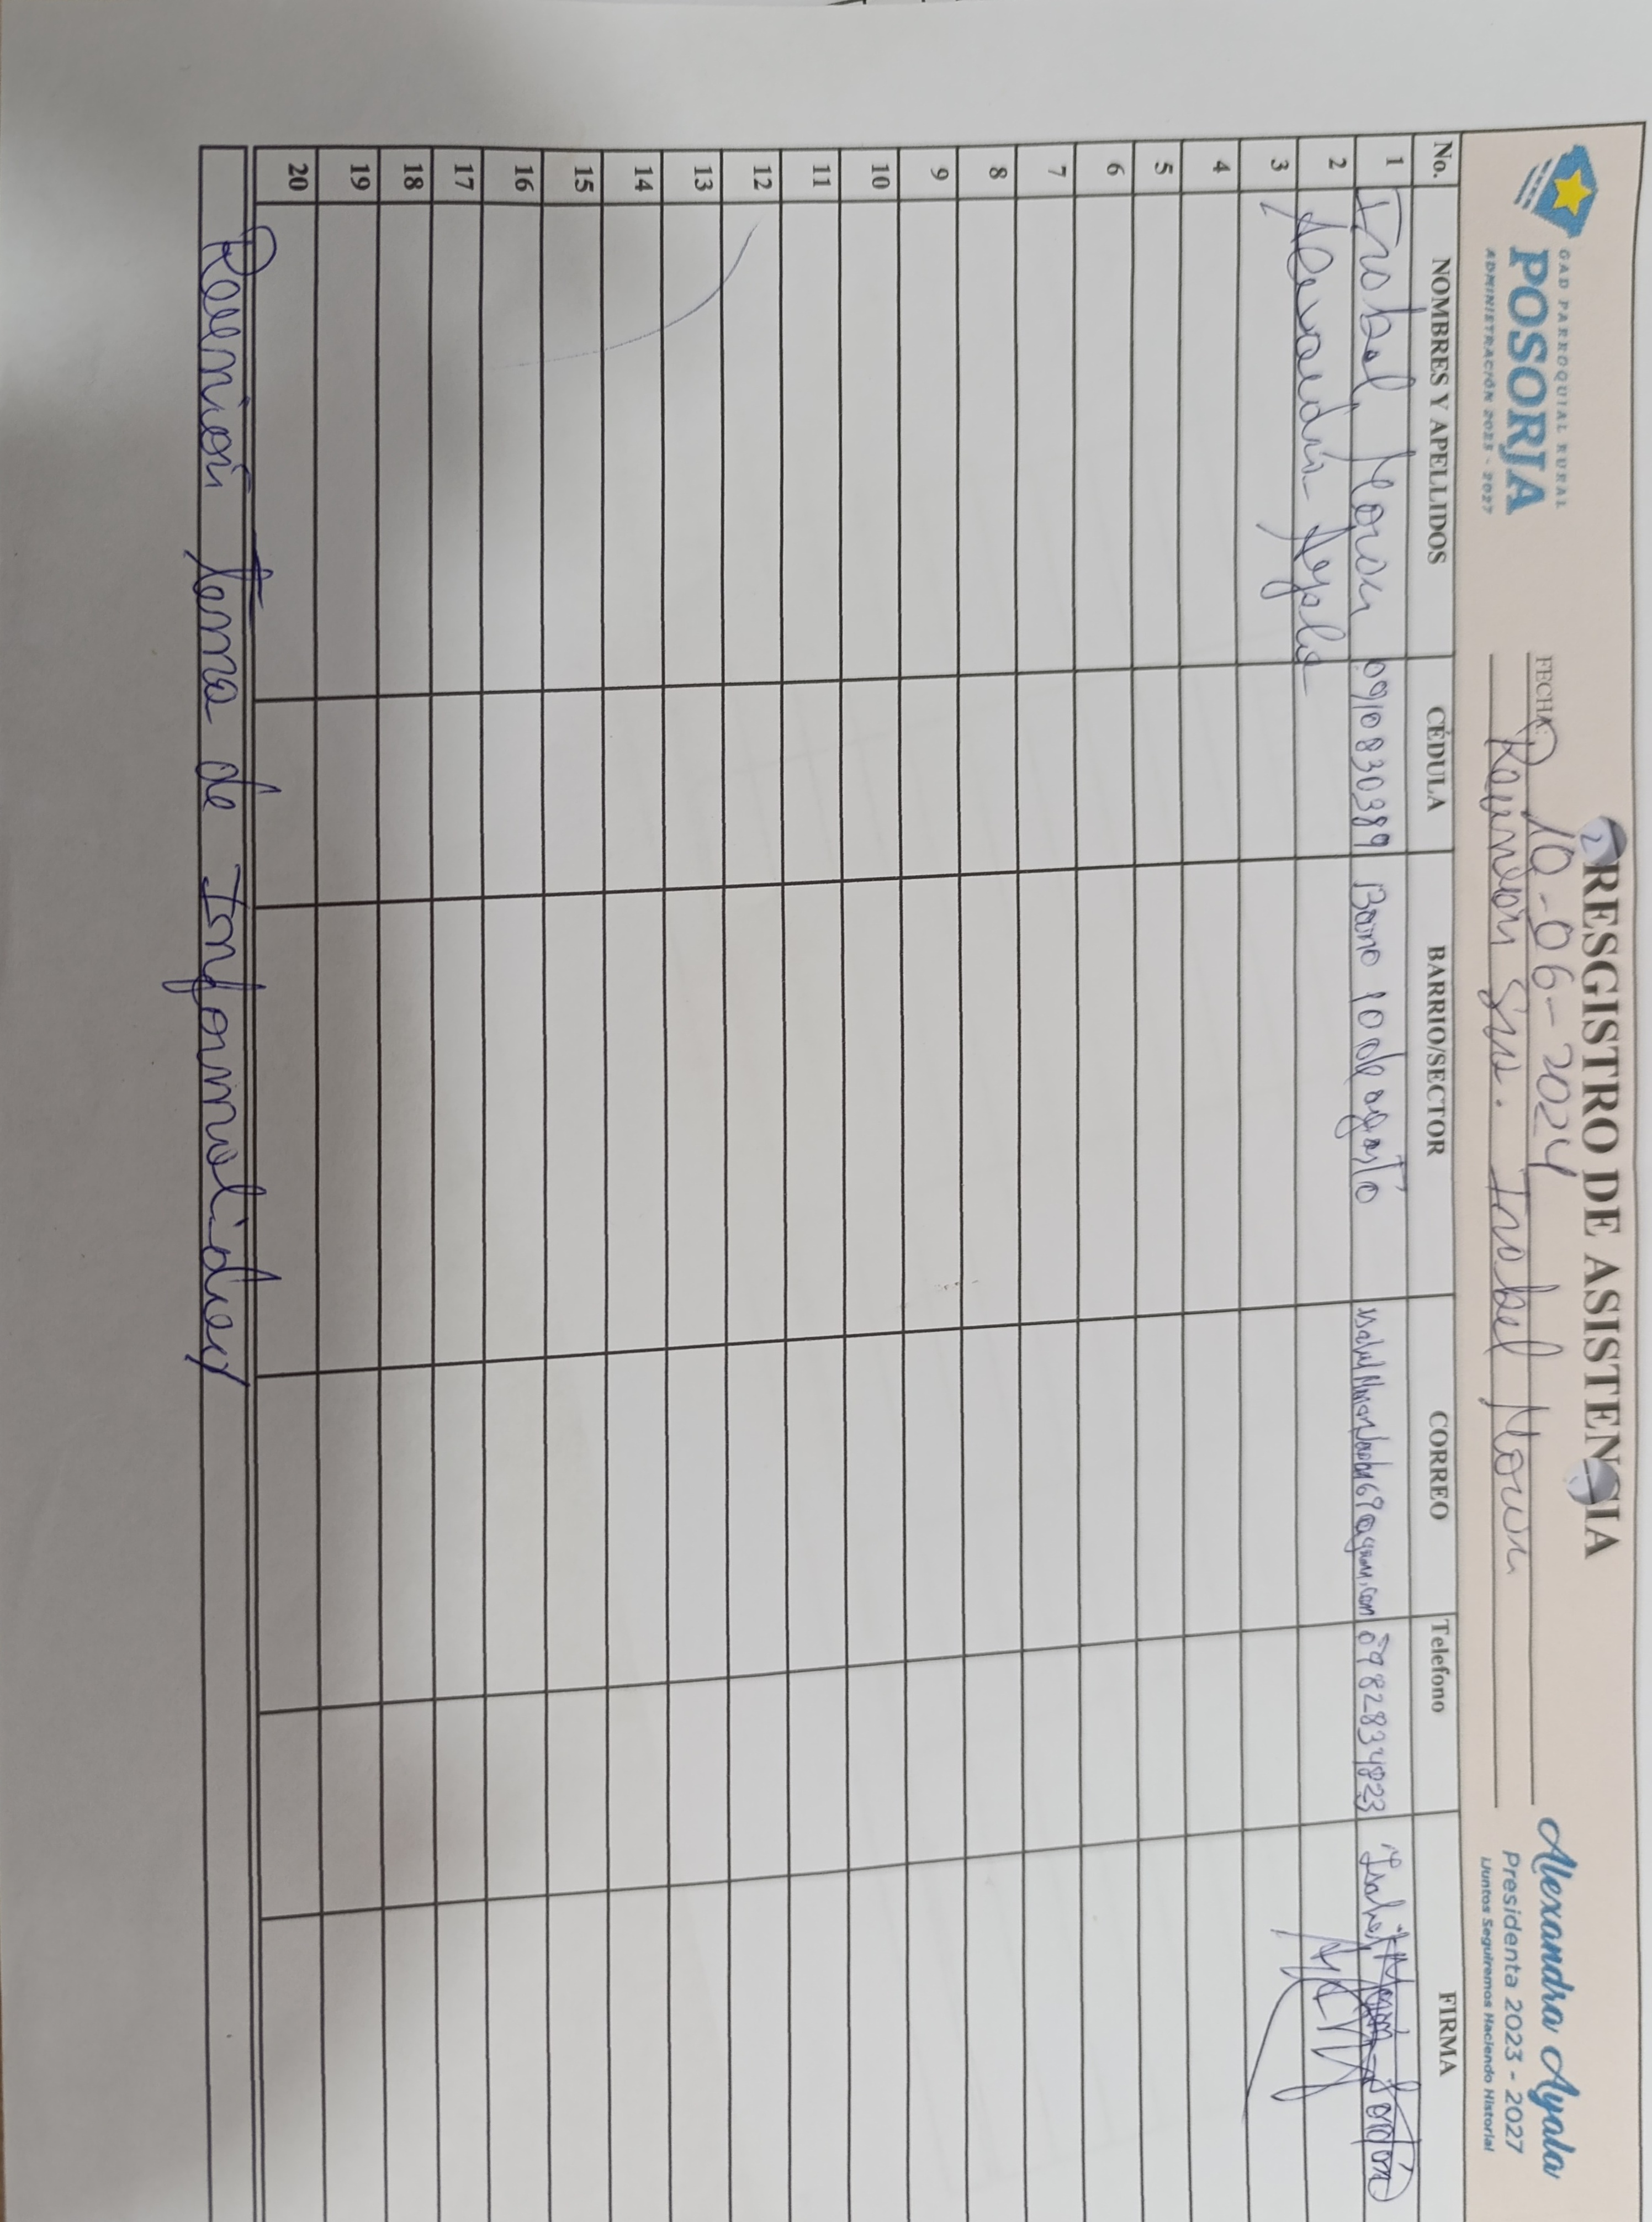 GAD PARROQUIAL RURAL
POSORJA
ADMINISTRACIÓN 2023 - 2027
RESGISTRO DE ASISTENCIA
FECHA: 10-06-2024
Reunión Sra. Isabel Moran
Alexandra Ayala
Presidenta 2023 - 2027
¡Juntos Seguiremos Haciendo Historia!
No. NOMBRES Y APELLIDOS CÉDULA BARRIO/SECTOR CORREO Telefono FIRMA
1 Isabel Moran 0910830389 Barrio 10 de agosto 0982834823 Isabel Moran
2 Alexandra Ayala
3
4
5
6
7
8
9
10
11
12
13
14
15
16
17
18
19
20
Reunión Tema de Informalidad